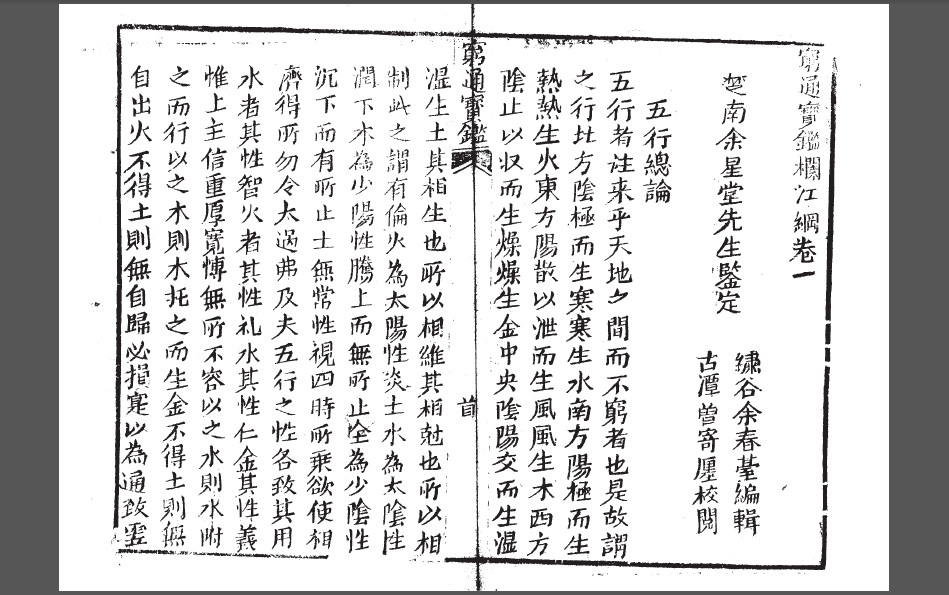 窮通寳鑑欄江綱卷一
楚南余星堂先生鑒定
繡谷余春䑓編輯
古潭曽寄㕓校閲
五行總論
五行者往来乎天地之間而不窮者也是故謂
之行北方陰極而生寒寒生水南方陽極而生
熱熱生火東方陽散以泄而生風風生木西方
陰止以収而生燥燥生金中央陰陽交而生湿
窮通寳鑑
首
湿生土其相生也所以相維其相尅也所以相
制此之謂有倫火為太陽性炎土水為太陰性
潤下木為少陽性騰上而無所止金為少陰性
沉下而有所止土無常性視四時所乗欲使相
濟得所勿令太過弗及夫五行之性各致其用
水者其性智火者其性礼水其性仁金其性義
惟土主信重厚寛愽無所不容以之水則水附
之而行以之木則木托之而生金不得土則無
自出火不得土則無自歸必損寔以為通致虚